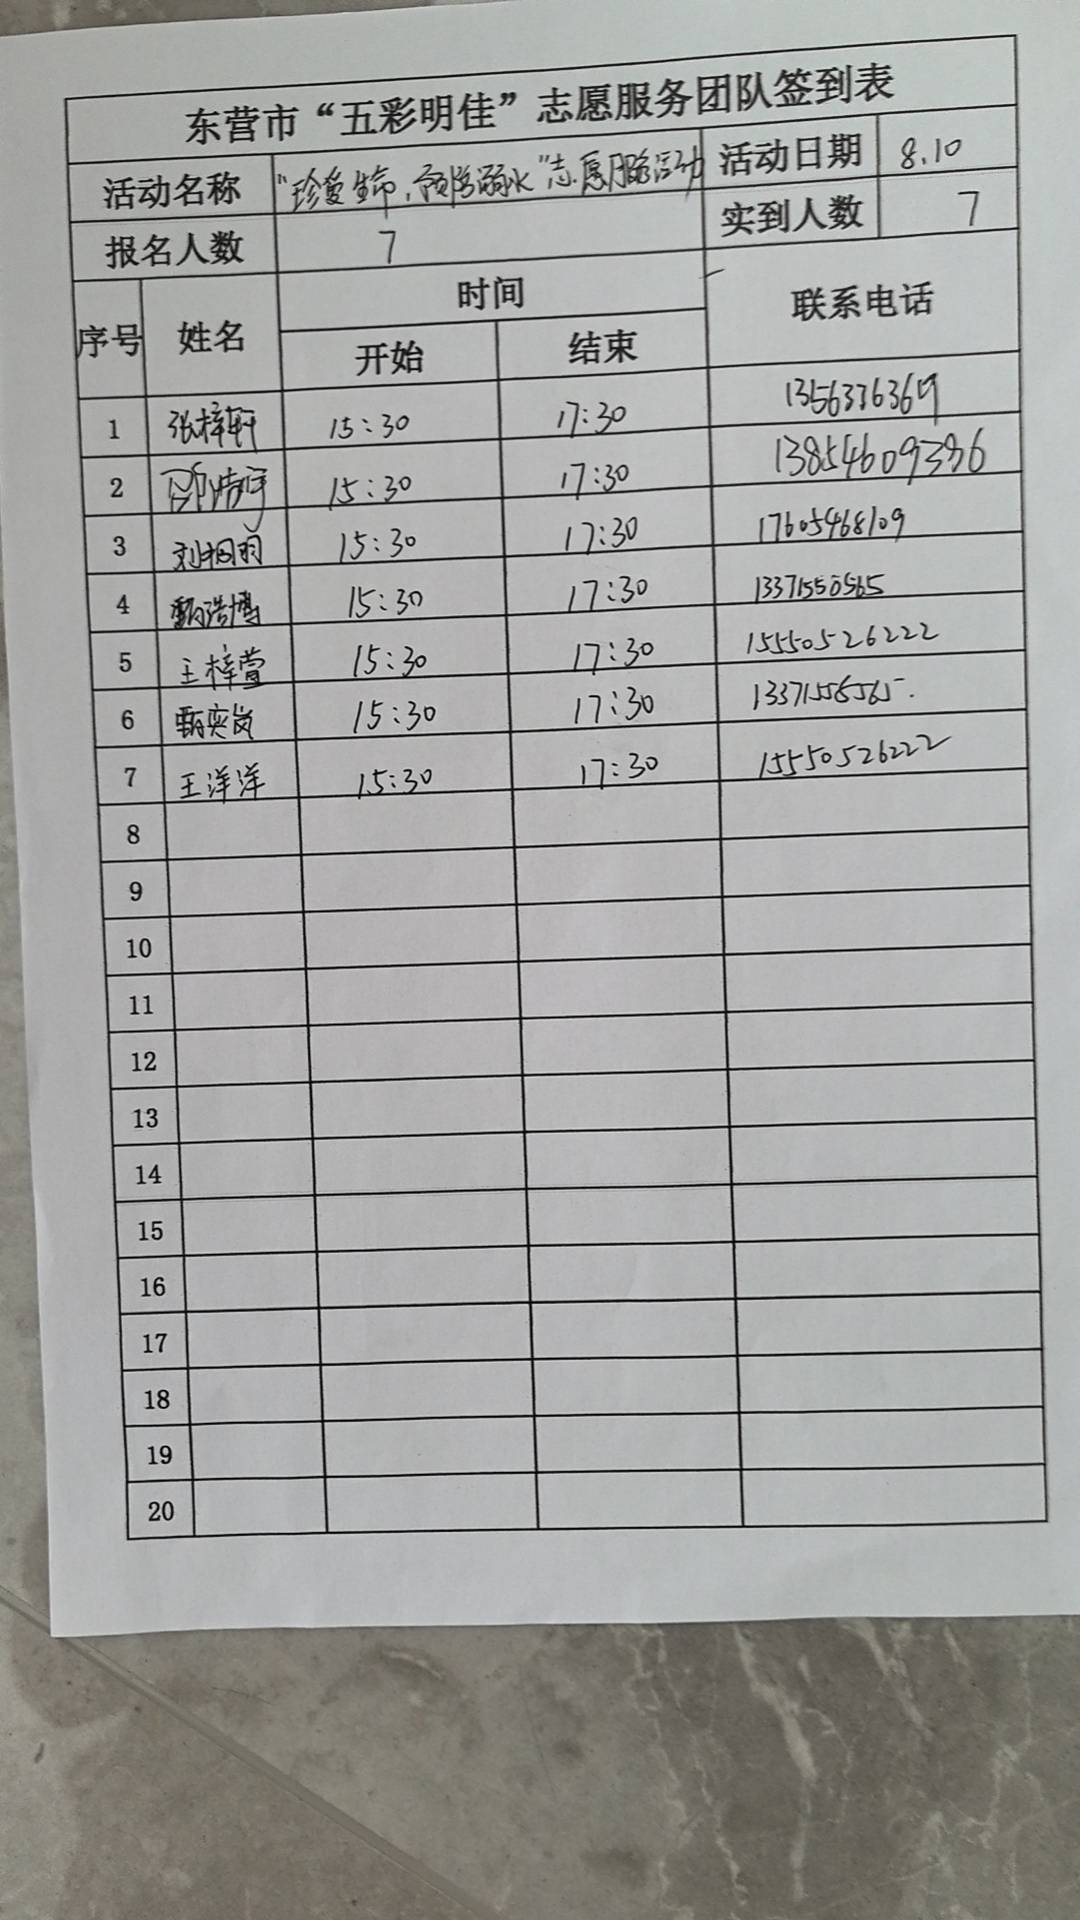 东营市“五彩明佳”志愿服务团队签到表
活动名称 “珍爱生命，预防溺水”志愿服务活动 活动日期 8.10
报名人数 7 实到人数 7
序号 姓名 时间 联系电话
开始 结束
1 张梓轩 15:30 17:30
2 邵浩宇 15:30 17:30 13854609386
3 刘桐羽 15:30 17:30 17605468109
4 甄浩博 15:30 17:30 13371550565
5 王梓萱 15:30 17:30 15550526222
6 甄奕岚 15:30 17:30
7 王洋洋 15:30 17:30 15550526222
8
9
10
11
12
13
14
15
16
17
18
19
20